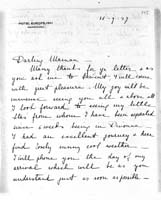 HOTEL EUROPEJSKI
11-9-29
Darling Maman —
Many thanks for yr letter, as
you ask me to dinner I will come
with just pleasure. My joy will be
immense seeing you all & above all
I look forward to seeing my little
Stas from whom I have been separated
never sweet & being in
I had an excellent journey & have
had lovely sunny cool weather
I will phone you the day of my
arrival which will be as you
understand just as soon as possible —